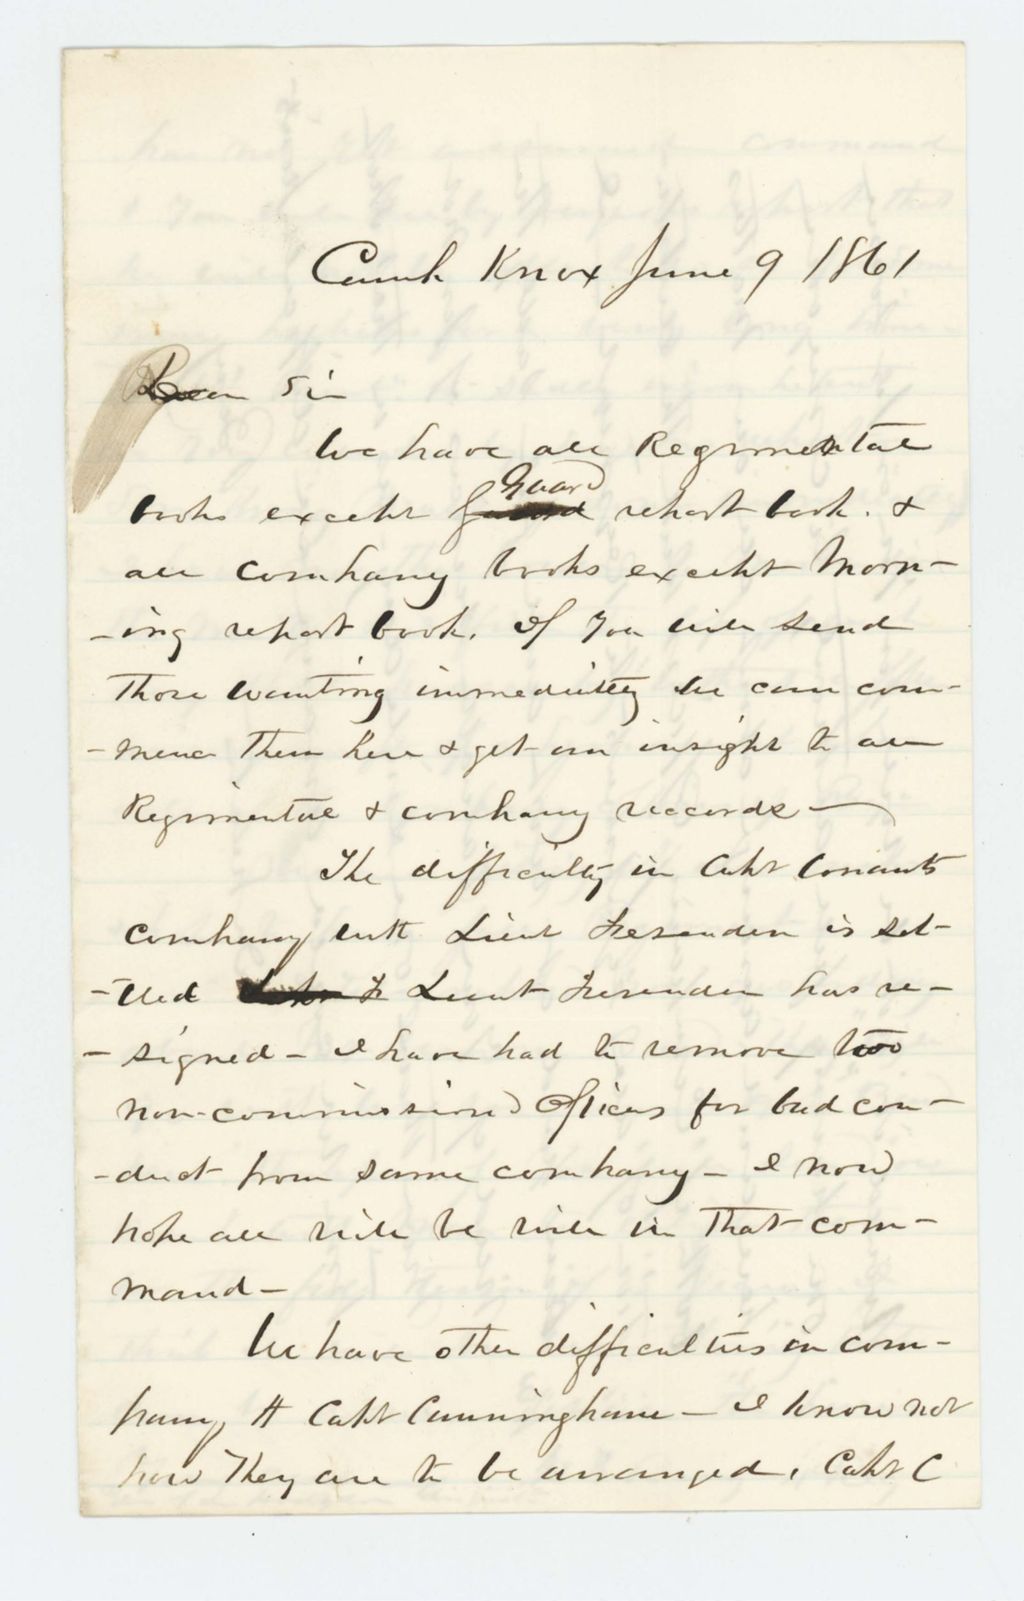 Camp Knox June 9 1861
Dear Sir
We have all Regimental
books except Guard Guard report book. &
all company books except Morn-
-ing report book. If you will send
those wanting immediately we can com-
-mence them here & get an insight to all
Regimental & company reccords —
The difficulty in Capt Conants
company with Lieut Fessenden is set-
-tled Fe Lieut Fessenden has re-
- signed - I have had to remove two
non-commissioned Officers for bad con-
-duct from same company - I now
hope all will be well in that com-
mand -
We have other difficulties in com-
pany H Capt Cunningham - I know not
how they are to be arranged, Capt C